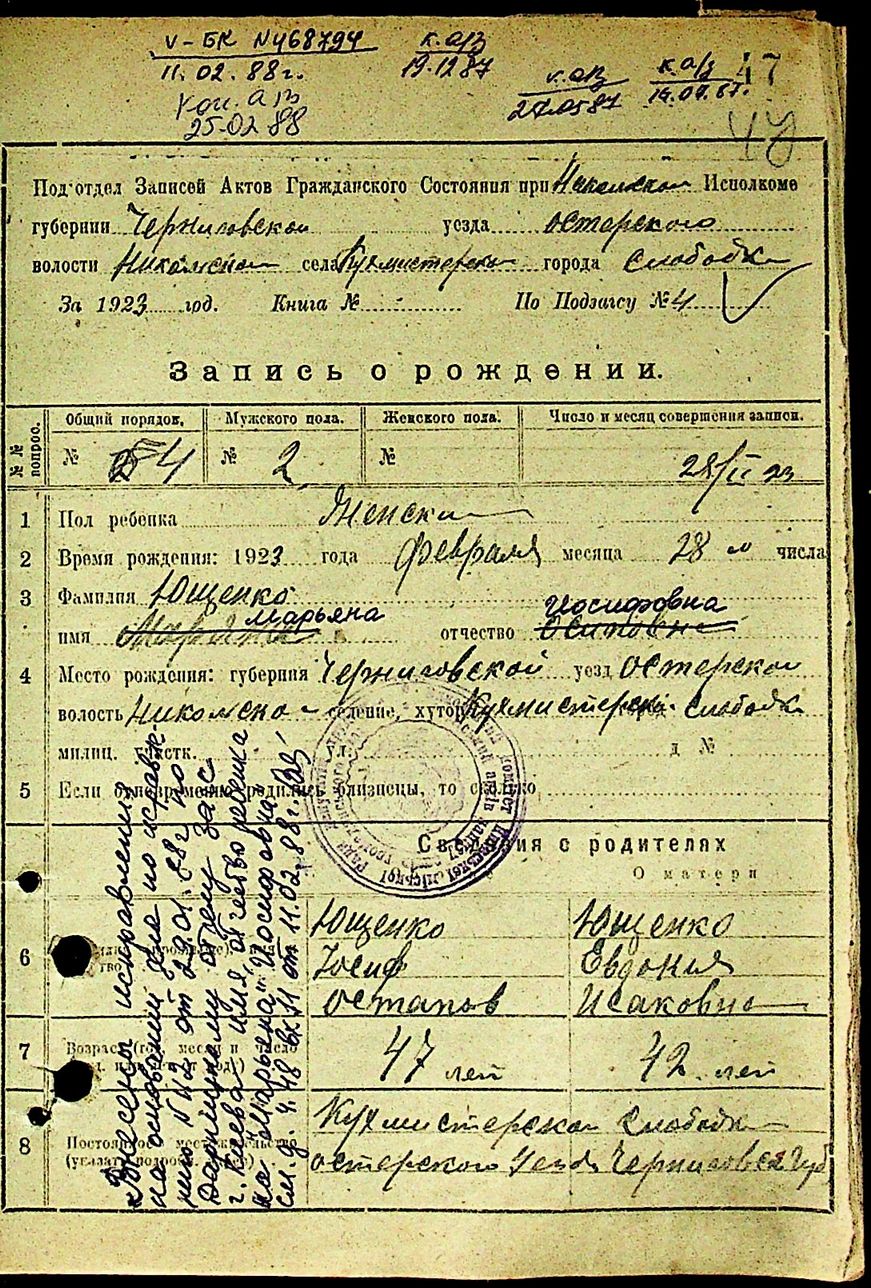 V-БК №468794
11.02.88г.
к.а/з
19.12.87
к.а/з
27.05.87
к.а/з
47
Коп. а/з
25.02.88
Под'отдел Записей Актов Гражданского Состояния при Исполкоме
губернии Черниговской уезда Остерского
волости Никольской села Кухмистерской города Слободки
За 1923 год. Книга № По Подзагсу № 4
Запись о рождении.
№№ вопрос.
Общий порядов. Мужского пола. Женского пола. Число и месяц совершения записи.
№ 4 № 2 № 28/II 23
1 Пол ребенка Женский
2 Время рождения: 1923 года февраля месяца 28 числа
3 Фамилия Ющенко
Марьяна Иосифовна
имя отчество Осиповна
4 Место рождения: губерния Черниговской уезд Остерской
волость Никольской селение, хутор Кухмистерск. слободка
милиц. участк. ул. д №
5 Если одновременно родились близнецы, то сколько
Сведения о родителях
О матери
6 Ющенко Ющенко
Иосиф Евдокия
Остапов Исаковна
7 Возраст 47 лет 42 лет
8 Постоянное местожительство Кухмистерской слободки
Остерского уезда Черниговск губ
Внесены исправления
на основании
№ 42 от 29.01.88г. по
Дарницкому отделу ЗАГС
г. Киева имя, отчество ребенка
на "Марьяна" "Иосифовна"
от 11.02.88г.